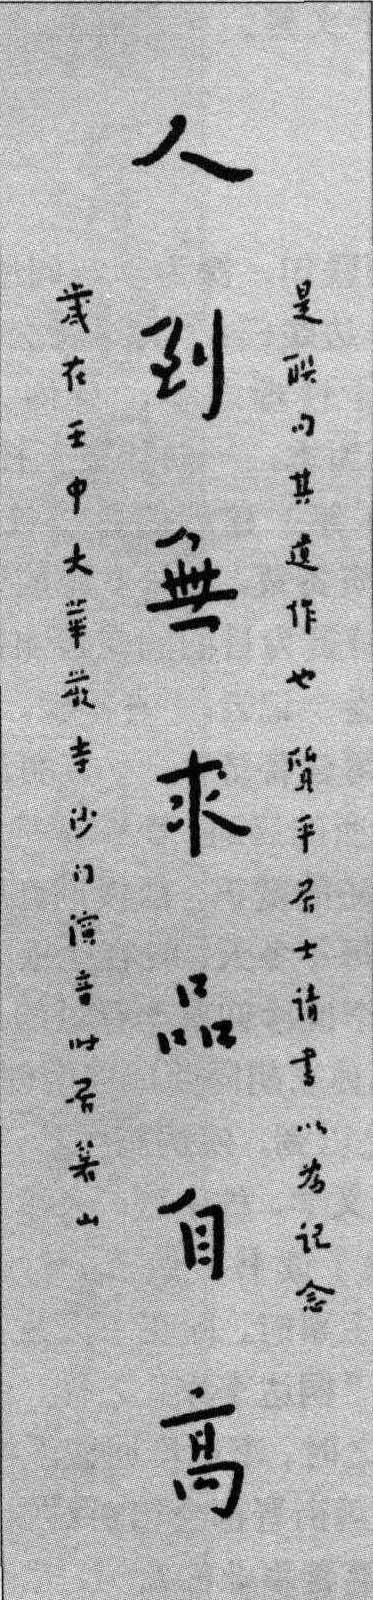 是联句其遺作也 質平居士請書以為記念
人到無求品自高
歲在壬申大華嚴寺沙门演音时居山